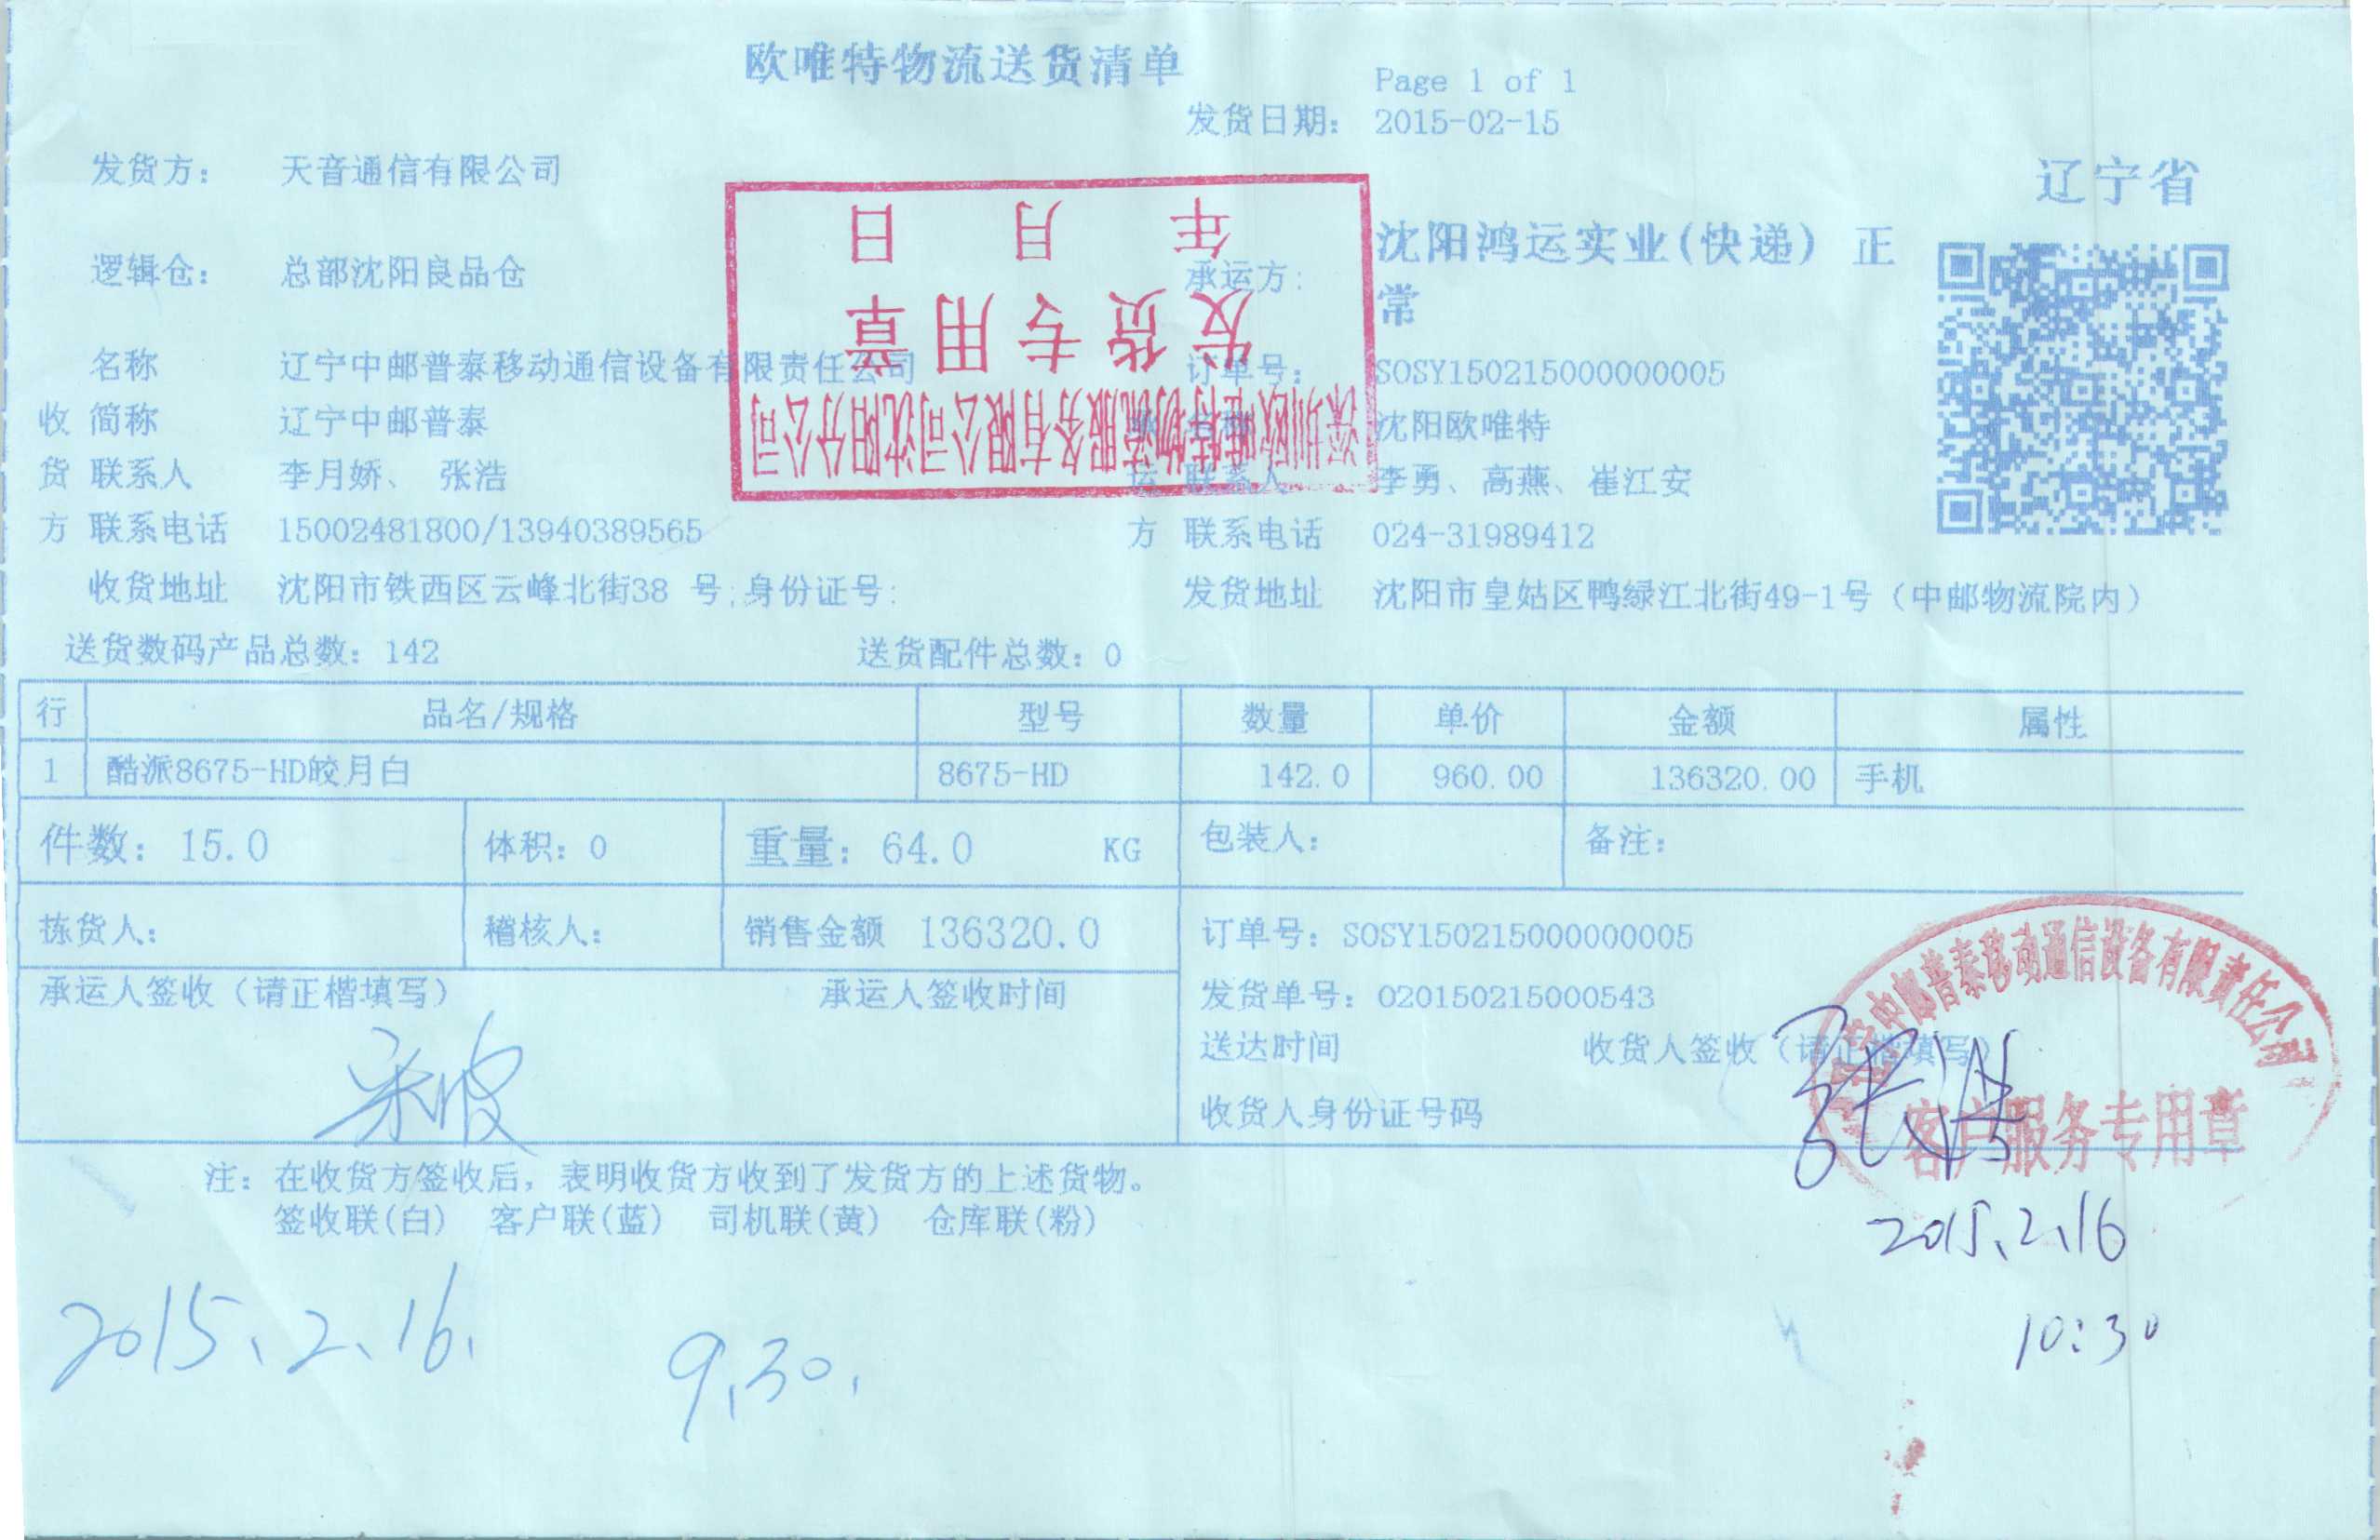 欧唯特物流送货清单
Page 1 of 1
发货日期： 2015-02-15
发货方： 天音通信有限公司
辽宁省
逻辑仓： 总部沈阳良品仓
承运方： 沈阳鸿运实业(快递) 正
常
年 月 日
发货专用章
深圳欧唯特物流服务有限公司沈阳分公司
名称 辽宁中邮普泰移动通信设备有限责任公司
订单号： SOSY150215000000005
收 简称 辽宁中邮普泰
承 名称 沈阳欧唯特
货 联系人 李月娇、 张浩
运 联系人 李勇、高燕、崔江安
方 联系电话 15002481800/13940389565
方 联系电话 024-31989412
收货地址 沈阳市铁西区云峰北街38 号;身份证号:
发货地址 沈阳市皇姑区鸭绿江北街49-1号（中邮物流院内）
送货数码产品总数：142 送货配件总数：0
行 品名/规格 型号 数量 单价 金额 属性
1 酷派8675-HD皎月白 8675-HD 142.0 960.00 136320.00 手机
件数：15.0 体积：0 重量：64.0 KG 包装人： 备注：
拣货人： 稽核人： 销售金额 136320.0 订单号：SOSY150215000000005
承运人签收（请正楷填写） 承运人签收时间 发货单号：020150215000543
送达时间 收货人签收（请正楷填写）
收货人身份证号码
宋波
张浩
辽宁中邮普泰移动通信设备有限责任公司
客户服务专用章
注：在收货方签收后，表明收货方收到了发货方的上述货物。
签收联(白) 客户联(蓝) 司机联(黄) 仓库联(粉)
2015.2.16
10:30
2015.2.16.
9.30.